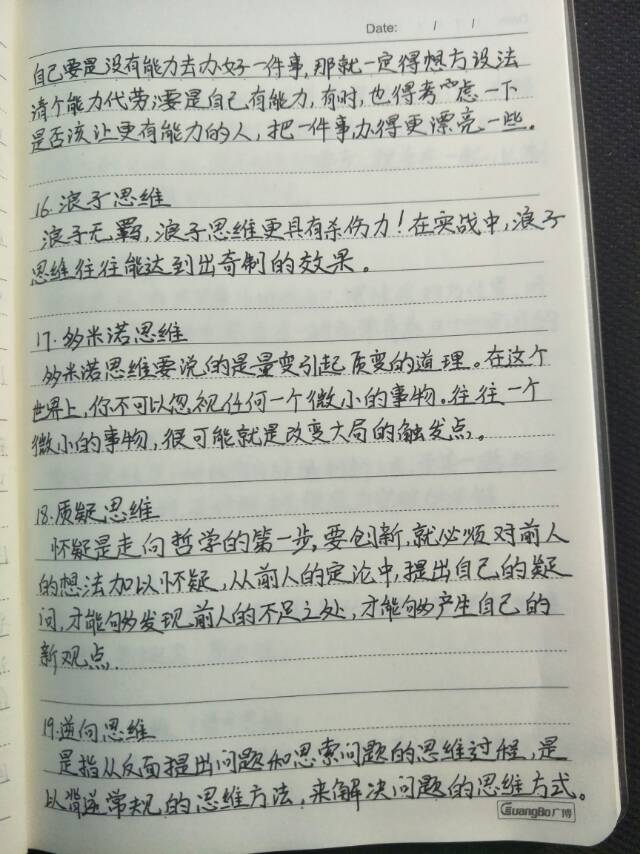 Date: / /
自己要是没有能力去办好一件事,那就一定得想方设法
请个能力代劳;要是自己有能力,有时,也得考虑一下
是否该让更有能力的人,把一件事办得更漂亮一些。
16.浪子思维
浪子无羁,浪子思维更具有杀伤力!在实战中,浪子
思维往往能达到出奇制的效果。
17.多米诺思维
多米诺思维要说的是量变引起质变的道理。在这个
世界上,你不可以忽视任何一个微小的事物。往往一个
微小的事物,很可能就是改变大局的触发点。
18.质疑思维
怀疑是走向哲学的第一步,要创新,就必须对前人
的想法加以怀疑,从前人的定论中,提出自己的疑
问,才能够发现前人的不足之处,才能够产生自己的
新观点.
19.逆向思维
是指从反面提出问题和思索问题的思维过程,是
以背逆常规的思维方法,来解决问题的思维方式。
GuangBo广博